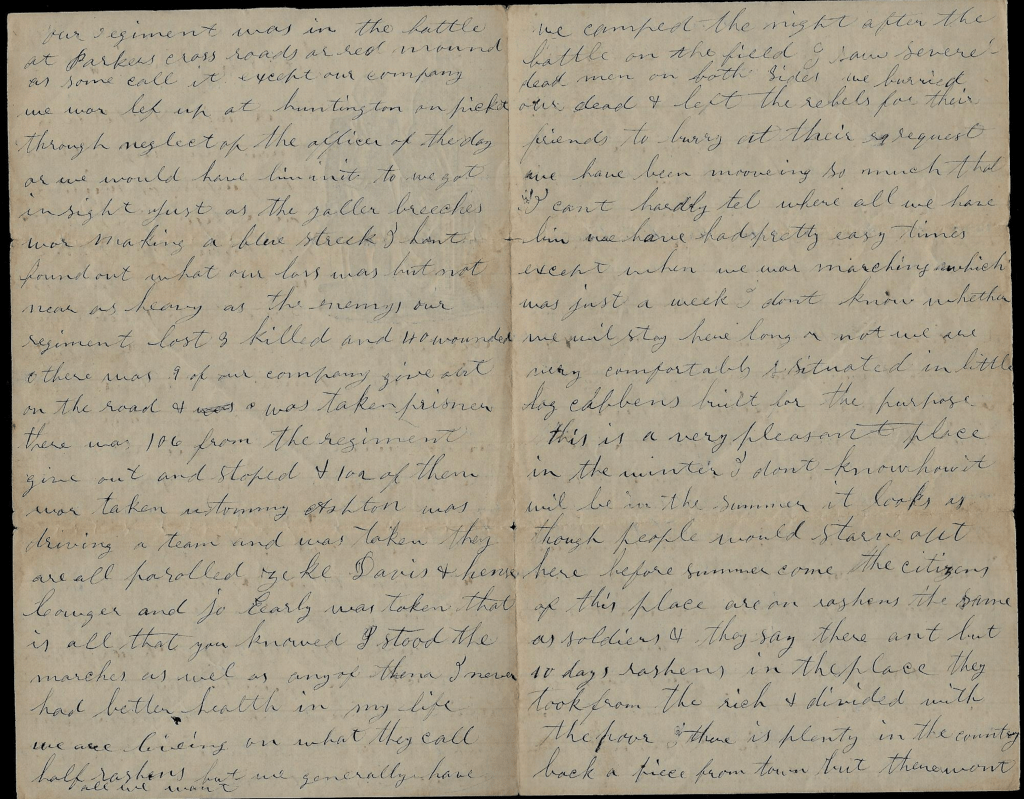 our regiment was in the battle
at Parkers cross roads or red mound
as some call it except our company
we war left up at huntington on picket
through neglect of the officer of the day
or we would have bin in it to we got
in sight just as the yaller breeches
war making a blue streek I hant
found out what our loss was but not
near as heavy as the enemys our
regiment lost 3 killed and 40 wounded
there was 9 of our company give out
on the road & was taken prisner
there was 106 from the regiment
give out and stoped & 102 of them
war taken tommy Ashton was
driving a team and was taken they
are all parolled zeke Davis & henry
Cowger and jo Early was taken that
is all that you knowed I stood the
marches as wel as any of them I never
had better health in my life
we are liveing on what they call
half rashens but we generally have
all we want
we camped the night after the
battle on the field I saw severe
dead men on both sides we burried
our dead & left the rebels for their
friends to burry at their request
we have been mooveing so much that
I cant hardly tel where all we have
bin we have had pretty easy times
except when we war marching which
was just a week I dont know whether
we wil stay here long or not we are
very comfortably situated in little
log cabbens built for the purpose
this is a very pleasant place
in the winter I dont know how it
wil be in the summer it looks as
though people would starve out
here before summer come the citizens
of this place are on rashens the same
as soldiers & they say there ant but
10 days rashens in the place they
took from the rich & divided with
the poor there is plenty in the country
back a piece from town but there wont